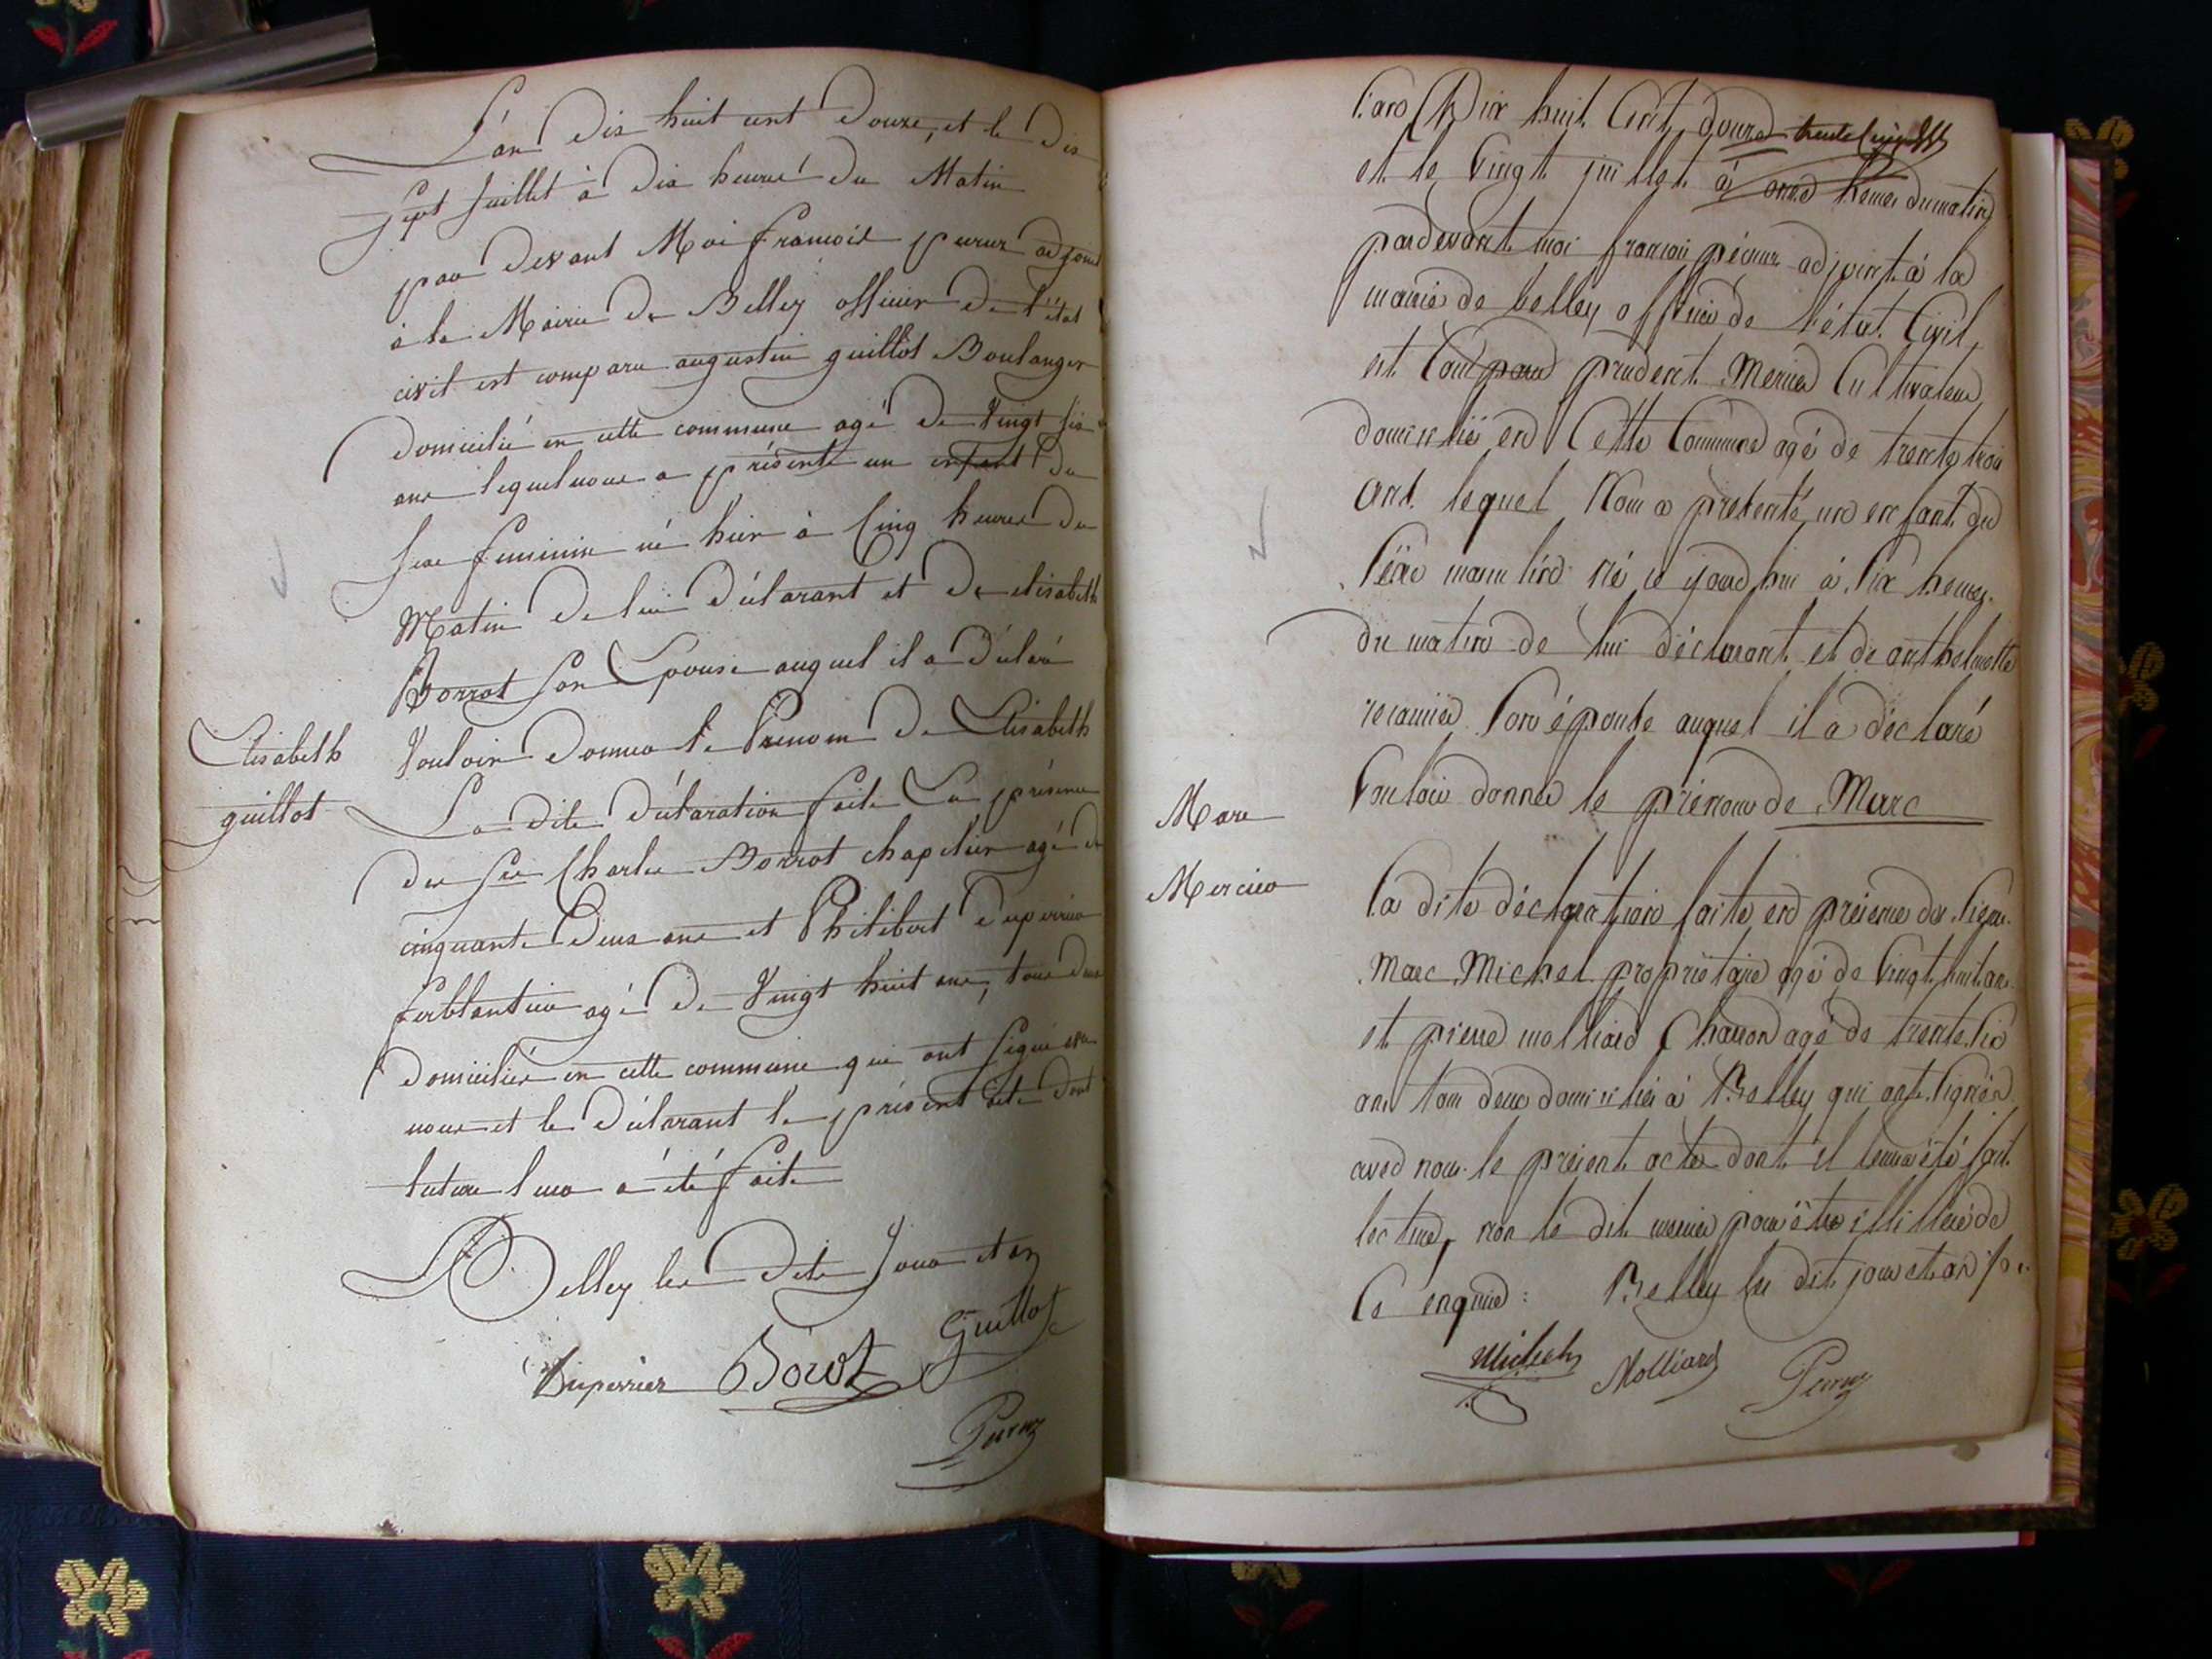 L'an Dix huit cent Douze, et le Dix
sept Juillet à Dix heures Du Matin
par Devant Moi françois peruz adjoint
à la Mairie De Belley officier De l'état
civil est comparu augustin guillot Boulanger
Domicilié en cette commune agé De Vingt six
ans lequel nous a présenté un enfant Du
sexe feminin né hier à Cinq heures Du
Matin De lui Déclarant et De elisabeth
Borrot son Epouse auquel il a Déclaré
Elisabeth
guillot
Vouloir Donner le Prenom De Elisabeth
La Dite Déclaration faite En présence
des Srs Charles Borrot chapelier agé de
cinquante Deux ans et Philibert Duperrier
ferblantier agé De Vingt huit ans, tous Deux
Domiciliés en cette commune qui ont signé avec
nous et le Déclarant le présent acte Dont
lecture leur a été faite
Belley les Dits Jour et an
Duperrier Borot Guillot
L'an Dix huit Cent douze
et le Vingt juillet à onze heures du matin
pardevant moi françois péruz adjoint à la
mairie de belley officier de l'état Civil,
est Comparu prudent Mercier Cultivateur
domicilié en Cette Commune agé de trente trois
ans lequel Nous a présenté un enfant du
Sexe masculin né ce jourd'hui à Six heures
du matin de lui déclarant et de anthelmette
recamier Son épouse auquel il a déclaré
Marc
Mercier
Vouloir donner le prénom de Marc
La dite déclaration faite en présence des Sieurs
Marc Michel propriétaire agé de Vingt huit ans
et pierre molliard Charron agé de trente six
ans tous deux domiciliés à Belley qui ont signés
avec nous le présent acte dont il leur a été fait
lecture, non le dit mercier pour être illitéré de
Ce enquis : Belley les dits jour et an
Michel Molliard